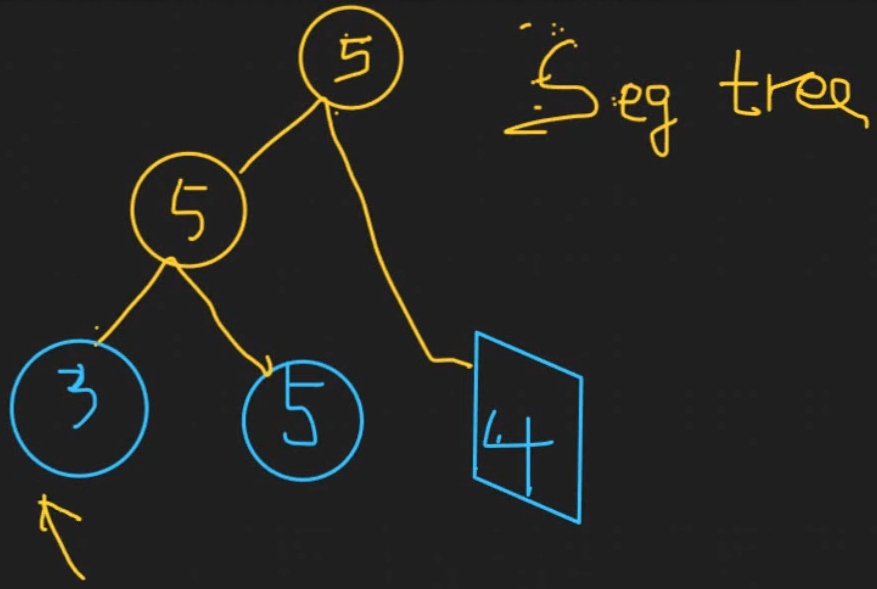 5
Seg tree
5
3
5
4